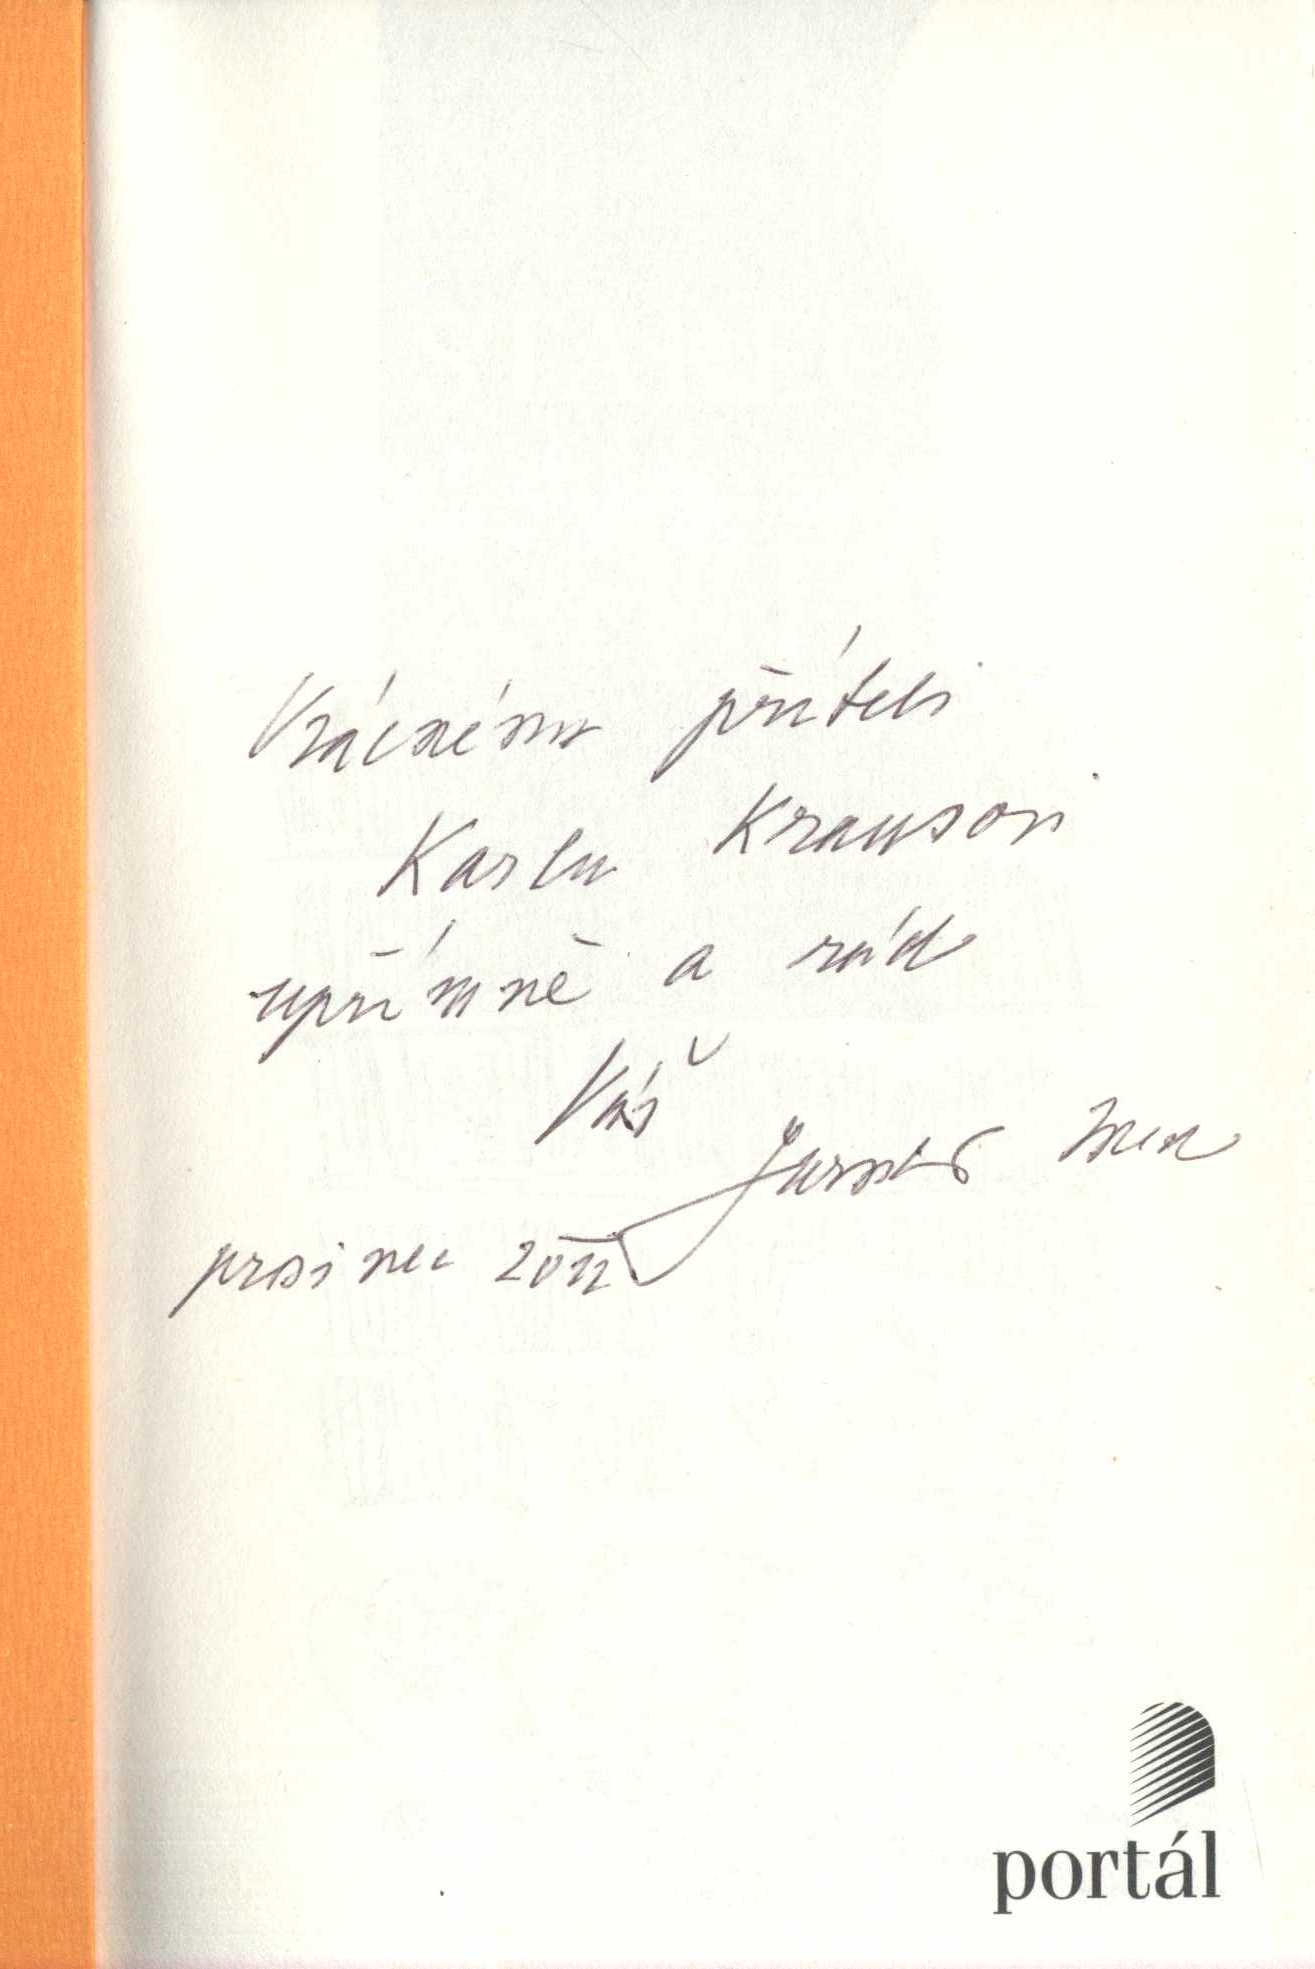 Vzácnému příteli
Karlu Krausovi
upřímně a rád
Váš
Jaroslav Med
prosinec 2011
portál